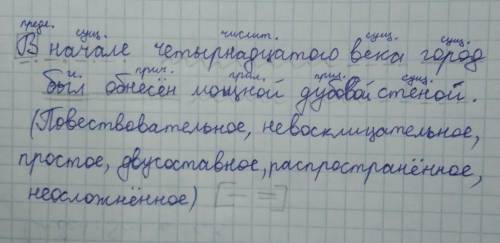 предл. сущ. числит. сущ. сущ.
В начале четырнадцатого века город
г. прич. прил. прил. сущ.
был обнесён мощной дубовой стеной.
(Повествовательное, невосклицательное,
простое, двусоставное, распространённое,
неосложнённое) [— =]